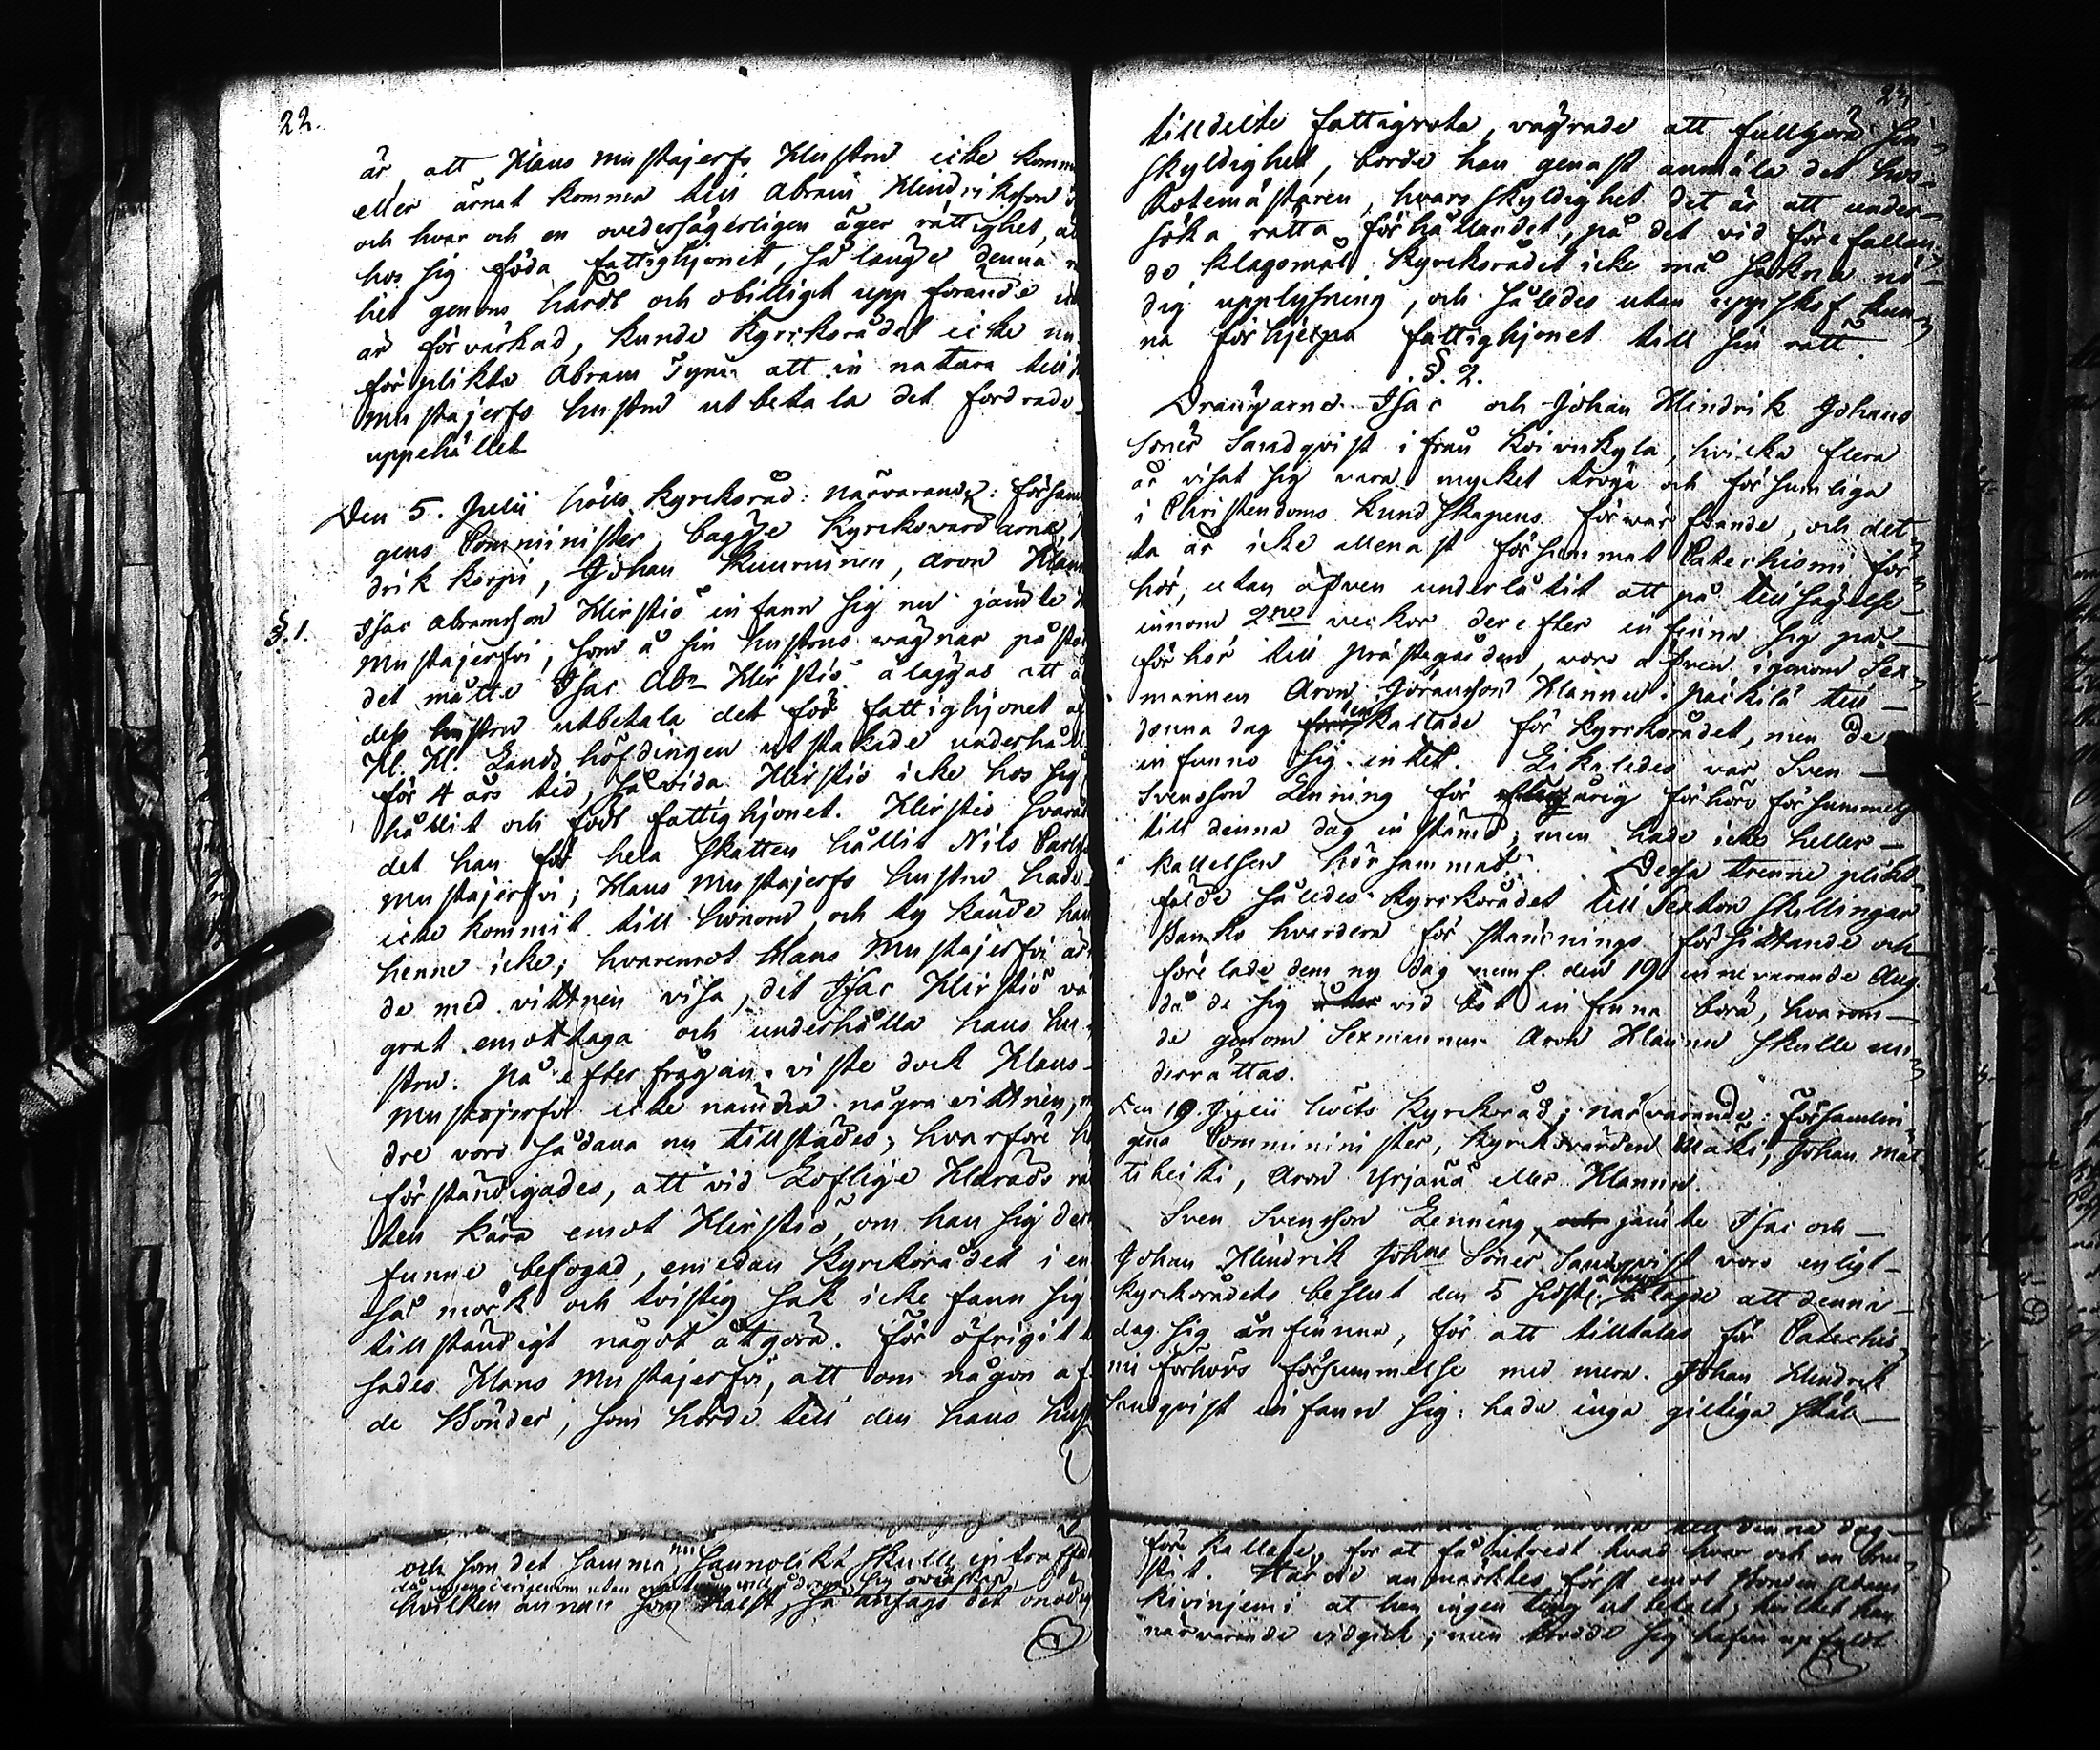 22.
är, att Klaus Mustajerfs Hustru icke komm
eller ärnat komma till Abram Hindriksson
och hvar och en ovedersägerligen äger rättighet, at
hos sig föda fattighjonet, så länge denna
het genom hårdt och obilligt uppförande
är förvärkad, kunde Kyrckorådet icke nu
förplikta Abram Tyni att in natura till
Mustajerfs hustru utbetala det fordrade
uppehället
Den 5. Julii hölts Kyrckoråd: närvarande: Försam
gens Comminister, bägge Kyrckovärdarne,
drik Korpi, Johan Kuurninen, Aron Hann
§. 1. Isac Abramsson Hirstiö infann sig nu jämte
Mustajerfvi, som å sin hustrus wägnar påstod
det måtte Isac Abrn Hirstiö åläggas att å
dess hustru utbetala det för fattighjonet af
H. H. Landshöfdingen utstakade underhåll
för 4 års tid, såvida Hirstiö icke hos sig
hållit och födt fattighjonet. Hirstiö svarade
det han för hela skatten hållit Nils Carls
Mustajerfvi; Klaus Mustajerfs hustru hade
icke kommit till honom, och ty kände han
henne icke; hvaremot Klaus Mustajerfvi
de med vittnen visa, det Isac Hirstiö vä
grat emottaga och underhålla hans hu
stru. På efterfrågan viste dock Klaus
Mustajerfvi icke nämna några vittnen,
dre voro sådana nu tillstädes, hvarföre h
förständigades, att vid Loflige Härads rä
ten kära emot Hirstiö, om han sig der
funne befogad, emedan Kyrckorådet i en
så mörk och tvistig sak icke fann sig
tillständigt något åtgöra. För öfrigit
sades Klaus Mustajerfvi, att om någon af
de Bönder, som hörde till den hans hust
och som det samma nu sannolikt skulle inträffa
hvilken annan som hälst, så ansågs det onödi
tilldelte fattigrota, vägrade att fullgöra sin
skyldighet, borde han genast anmäla det hos
Rotemästaren, hvars skyldighet det är att under-
söka rätta förhållandet, på det vid förefallan
de klagomål Kyrckorådet icke må sakna nö-
dig upplysning, och således utan uppskof kun
na förhjelpa fattighjonet till sin rätt.
§. 2.
Drängarne Isac och Johan Hindrik Johans
Söner Sandqvist ifrån Koivukyla, hvilka flera
år visat sig vara mycket tröga och försumliga
i Christendoms Kundskapens förvärfvande, och det
ta år icke allenast försummat Catechismi för
hör, utan äfven underlåtit att på tillsägelse
innom 2ne veckor derefter infinna sig på
förhör till prästegården, voro äfven igenom Sex
mannen Aron Göransson Hannu Päckilä till
denna dag inkallade för Kyrckorådet, men de
infunno sig intet. Likaledes var Sven
Svensson Lenning för årig förhörs försummelse
till denna dag instämd; men hade icke heller
kallelsen hörsammat. Dessa trenne plickt
fälde således Kyrckorådet till Sexton skillingar
Banko hvardera för stämnings försittande och
före lade dem ny dag neml. den 19 innevarande Aug.
då de sig vid bot infinna borde, hvarom
de genom Sexmannen Aron Hannu skulle un
derrättas.
Den 19. Julii hölts Kyrckoråd; närvarande: Församlin-
gens Comminister, Kyrckovärden Mäki, Johan Mat
tiheiki, Aron Yrjänä eller Hannu.
Sven Svensson Lenning, jämte Isac och
Johan Hindrik Johns Söner Sandqvist voro enligt
Kyrckorådets beslut den 5 sidstl. ålagde att denna
dag sig infinna, för att tilltalas för Catechis
mi förhörs försummelse med mera. Johan Hindrik
Sandqvist infann sig: hade inga giltiga skäl
till denna dag
före kallade, för at få utredt hvad hvar och en
Härvid anmärktes först emot Bonden Adam
Kivinjemi at han ingen ting utbetalt, hvilket han
närvarande vidgick; men trodde sig hafva upfyldt